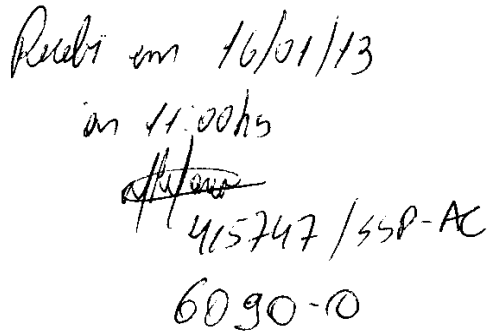 Recebi em 16/01/13
às 11:00hs
415747/SSP-AC
6090-0